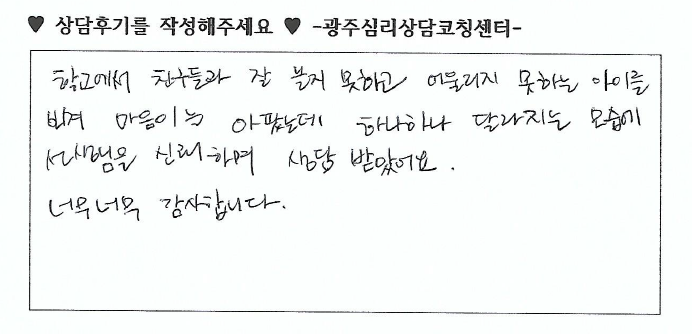 ♥ 상담후기를 작성해주세요 ♥ -광주심리상담코칭센터-
학교에서 친구들과 잘 놀지 못하고 어울리지 못하는 아이를
마음이 아팠는데 하나하나 달라지는 모습에
선생님을 신뢰하며 상담 받았어요.
너무너무 감사합니다.